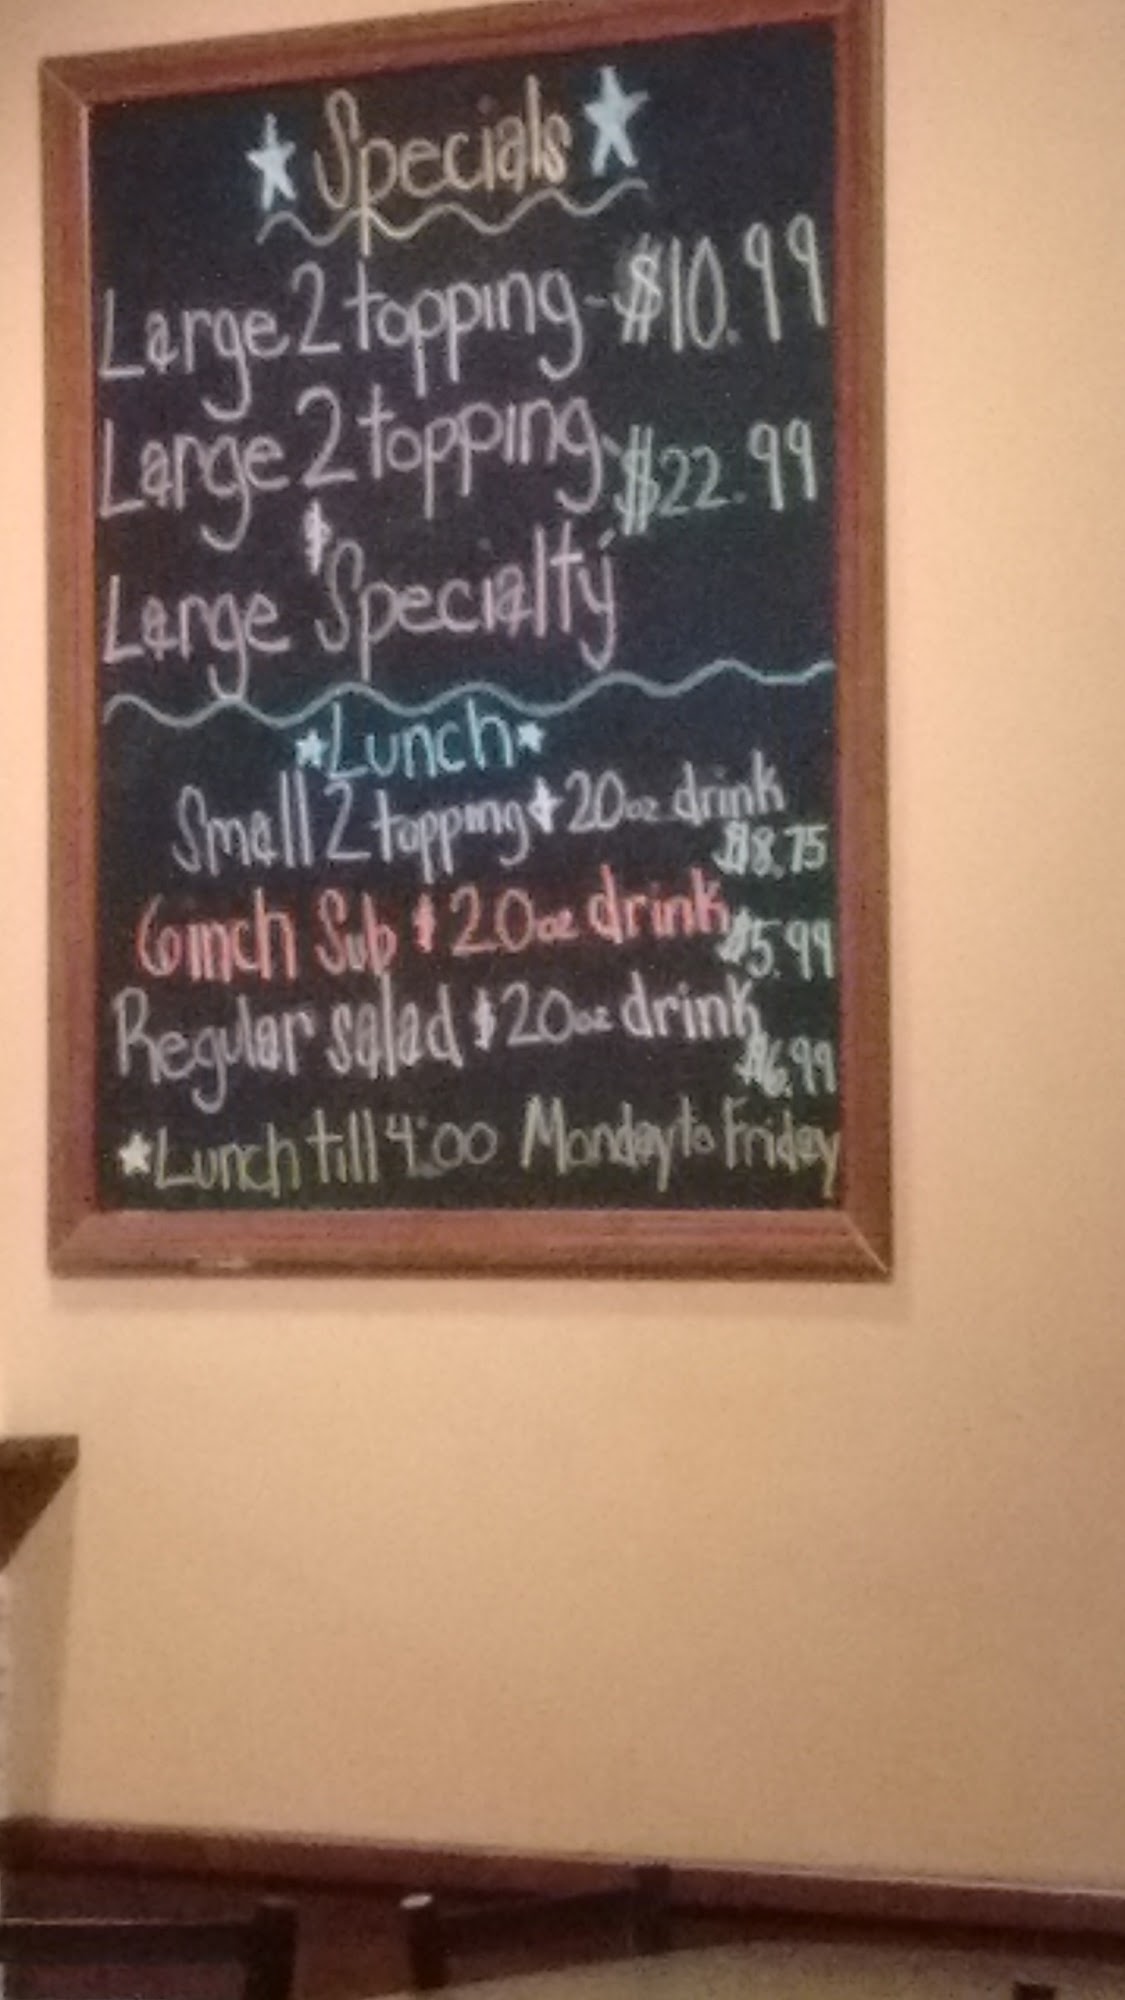 Specials
Large 2 topping - $10.99
Large 2 topping - $22.99
&
Large Specialty
Lunch
Small 2 topping & 20oz drink
$8.75
6inch Sub & 20oz drink
$5.99
Regular salad & 20oz drink
$6.99
Lunch till 4:00 Monday to Friday